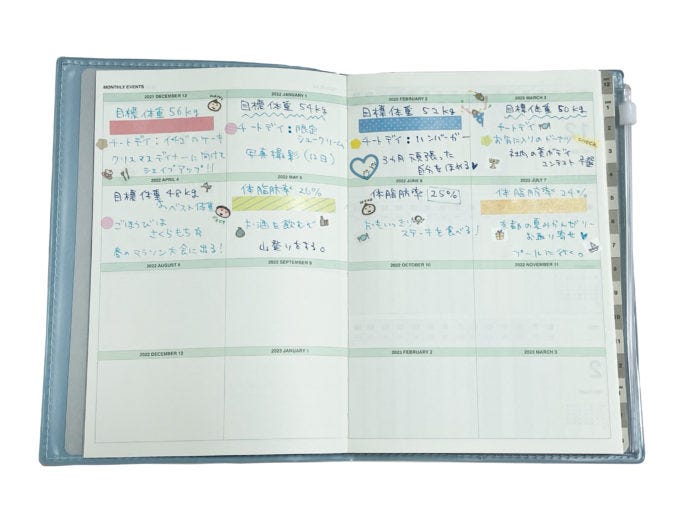 MONTHLY EVENTS
2021 DECEMBER 12
目標体重 56kg
チートデイ:イチゴのケーキ
クリスマスディナーに向けて
シェイプアップ!!
2022 JANUARY 1
目標体重 54kg
チートデイ:限定
シュークリーム
写真撮影(12日)
2022 FEBRUARY 2
目標体重 52kg
チートデイ:ハンバーガー
3ヶ月頑張った
自分をほめる
2022 MARCH 3
目標体重 50kg
チートデイ
お気に入りのドーナツ
CHECK
社内の美ボディ
コンテスト
2022 APRIL 4
目標体重 48kg
ベスト体重
ごほうびは
さくらもち
春のマラソン大会に出る!
2022 MAY 5
体脂肪率 26%
お酒を飲む
山登りをする。
2022 JUNE 6
体脂肪率 25%
おもいっきり
ステーキを食べる!
2022 JULY 7
体脂肪率 24%
京都の夏みかんゼリー
お取り寄せ
プールに行く。
2022 AUGUST 8
2022 SEPTEMBER 9
2022 OCTOBER 10
2022 NOVEMBER 11
2022 DECEMBER 12
2023 JANUARY 1
2023 FEBRUARY 2
2023 MARCH 3